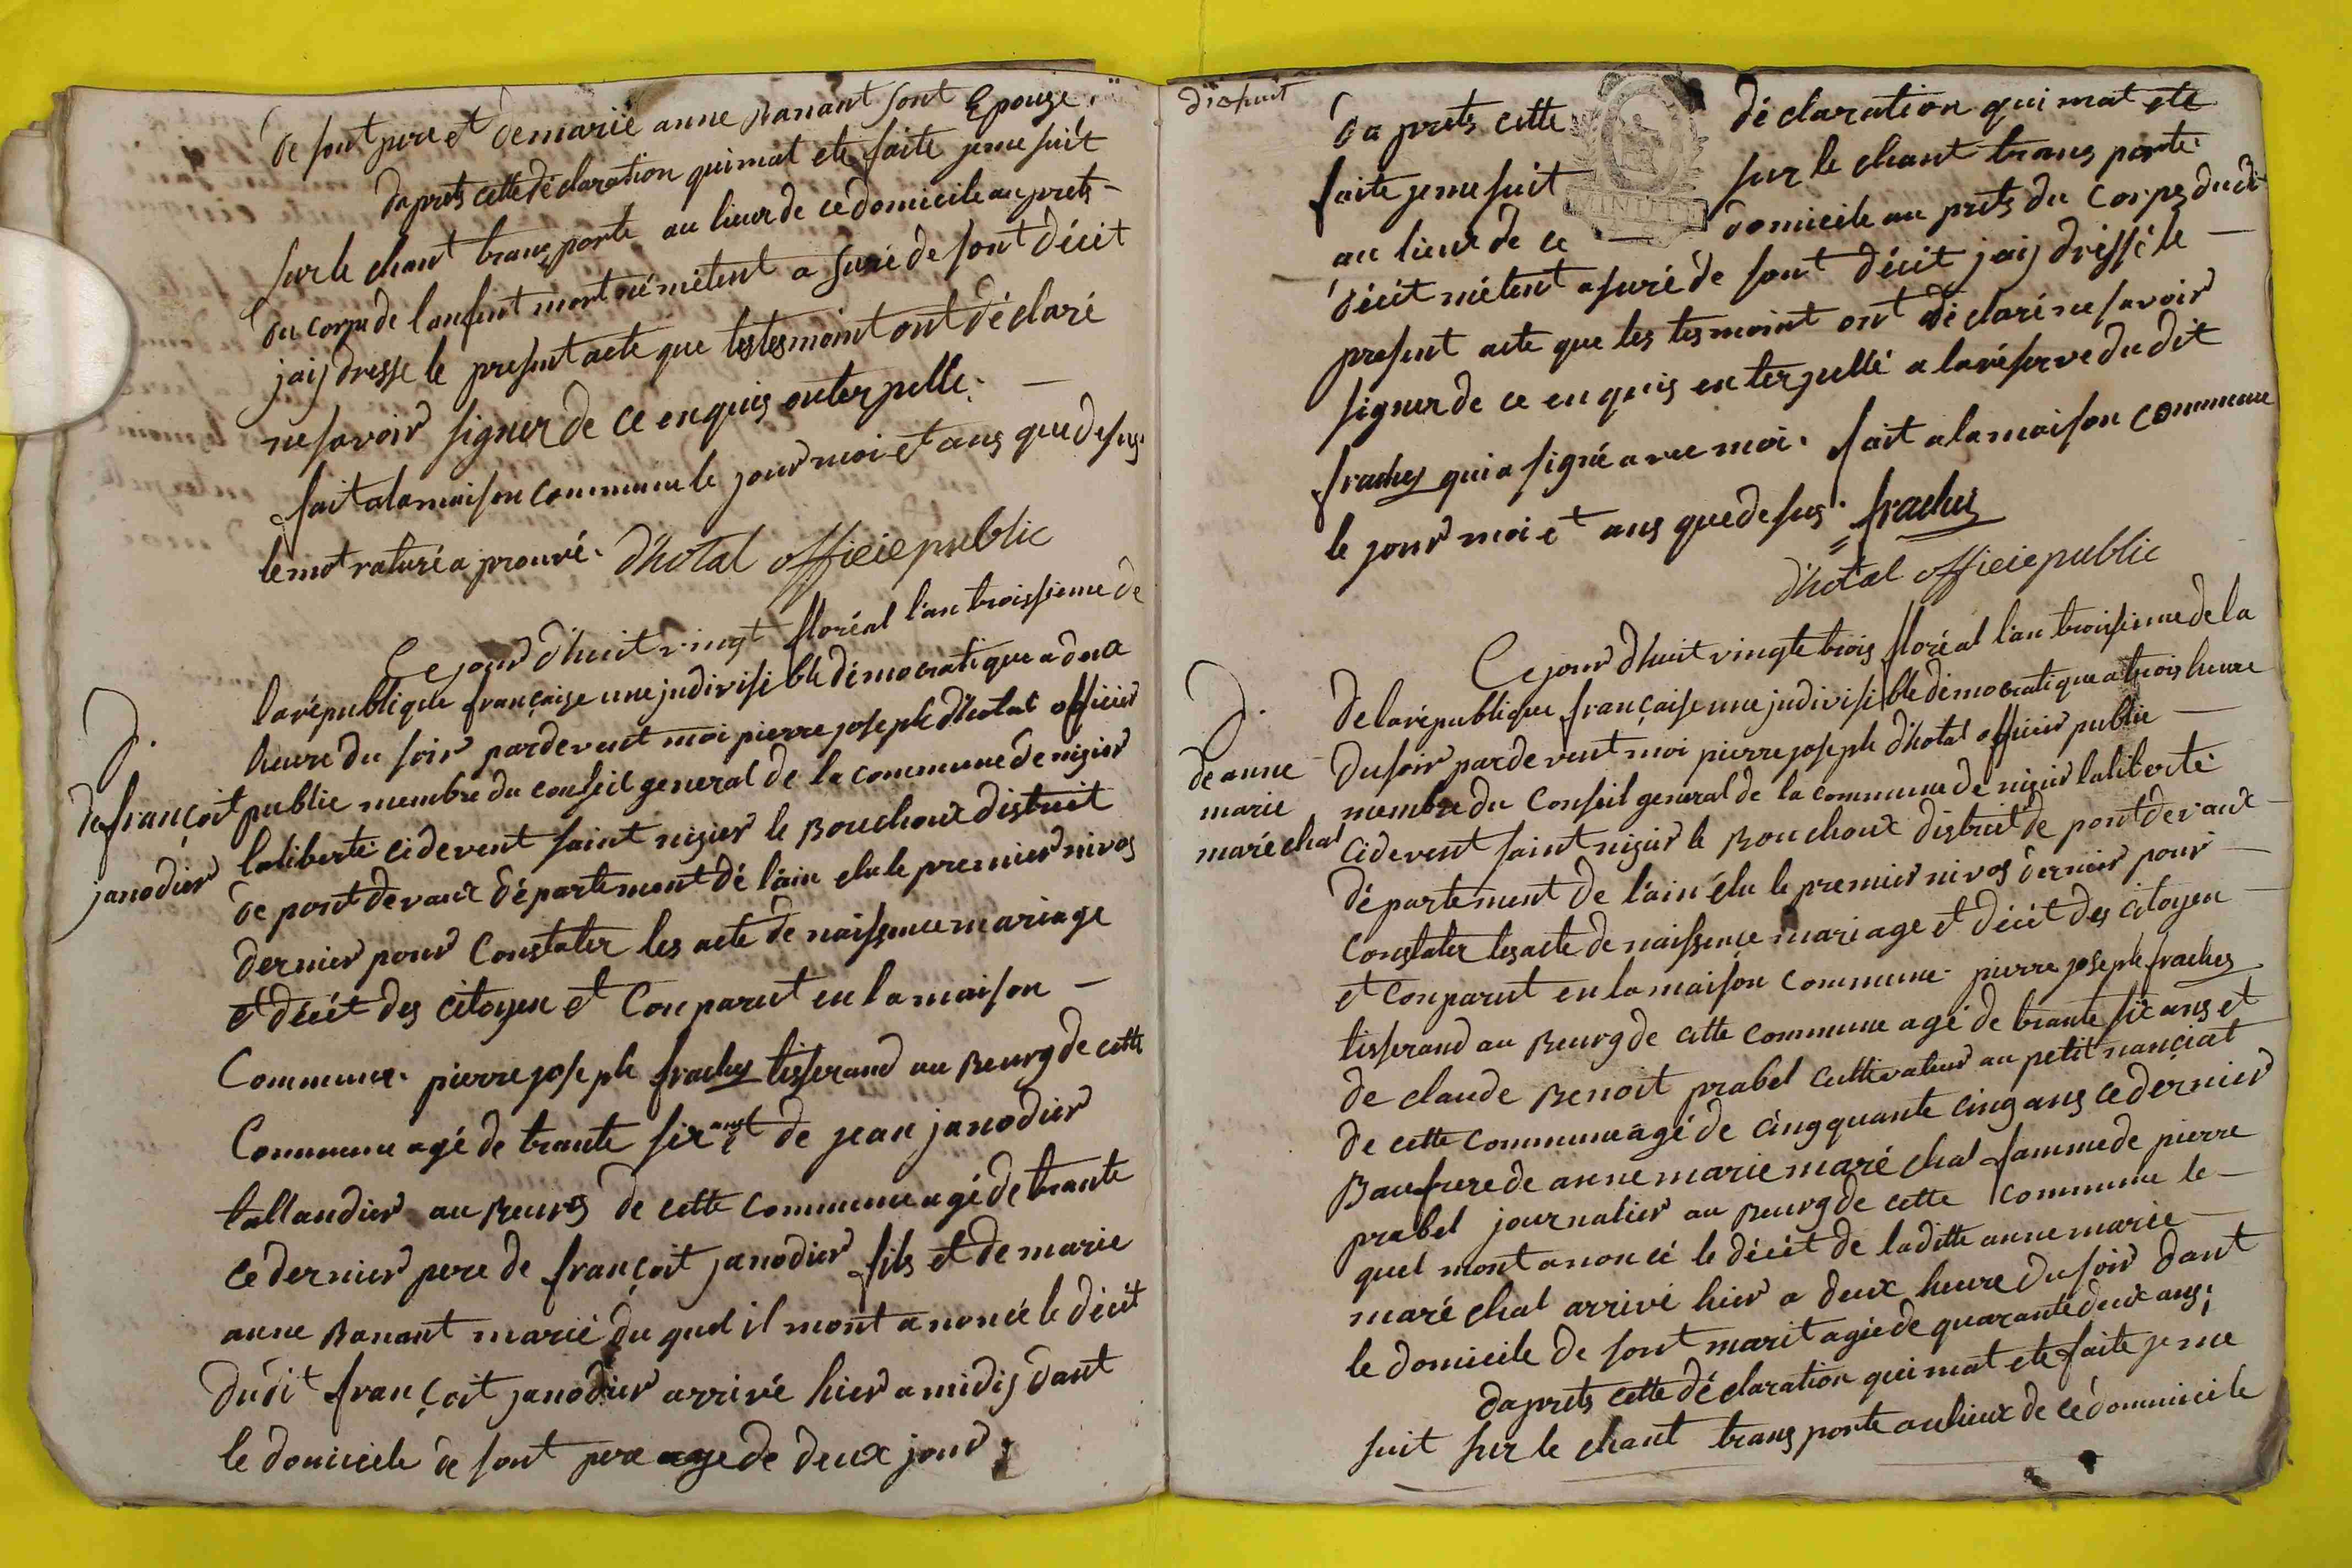 de sont pere et de marie anne Banant sont Epouze.
daprets cette déclaration qui mat ete faite je me suit
sur le chant transporte au lieux de ce domicile au prets
du corps de lanfent mort né métent a suré de sont décit
jaij dresse le present acte que les tesmoint ont déclaré
ne savoir signer de ce enquis enterpelle.
fait a la maison commune le jour moi et ans que desus.
le mot raturé a prouvé. d'hotal officie public
Ce jour d'huit vingt floréal l'an troissieme de
la république française une jndivisible démocratique a deux
heure du soir pardevent moi pierre joseph d'hotal officier
public membre du conseil general de la commune de nizier
laliberté cidevent saint nizier le Bouchoux district
de pont devaux département dé l'ain elu le premier nivos
dernier pour Constater les acte de naissence mariage
et décit des citoyen et Conparut en la maison
Commune. pierre joseph frachey tisserand au Bourg de cette
Commune agé de trante six ans et de jean janodier
tallandier au Bourg de cette commune agé de trante
ce dernier pere de françoit janodier fils et de marie
anne Banant marié du quel il mont anoncé le décit
dudit françoit janodier arrivé hier a midij dant
le domicile de sont pere age de deux jour;
D.
de françoit
janodier
dixhuit
da prets cette déclaration qui mat ete
faite je me suit sur le chant trans porte
au lieux de ce domicile au prets du Corps dudit
décit métent asuré de sont décit jaij dressé le
present acte que les tesmoint ont déclaré ne savoir
signer de ce enquis enterpellé a la réserve dudit
frachey qui a signé avec moi. fait a la maison commune
le jour moi et ans que desus. frachey
MINUTE
d'hotal officie public
Ce jour d'huit vingte trois floréal l'an troisieme de la
de la république française une jndivisible démocratique a trois heure
du soir pardevent moi pierre joseph d'hotal officier public
membre du Conseil general de la commune de nizier laliberté
cidevent saint nizier le Bouchoux district de pont devaux
département de l'ain élu le premier nivos dernier pour
Constater les acte de naissence mariage et décit des citoyen
et Conparut en la maison commune. pierre joseph frachey
tisserand au Bourg de cette commune agé de trante six ans et
de claude Benoit prabel cultivateur au petit nanciat
de cette commune agé de cinqquante cinq ans ce dernier
Baufrere de anne marie maréchal famme de pierre
prabel journalier au Bourg de cette commune le
quel mont anoncé le décit de laditte anne marie
maréchal arrivé hier a deux heure du soir dant
le domicile de sont marit agée de quarante deux ans;
daprets cette déclaration qui mat ete faite je me
suit sur le chant trans porte au lieux de ce domicile
D.
de anne
marie
maréchal